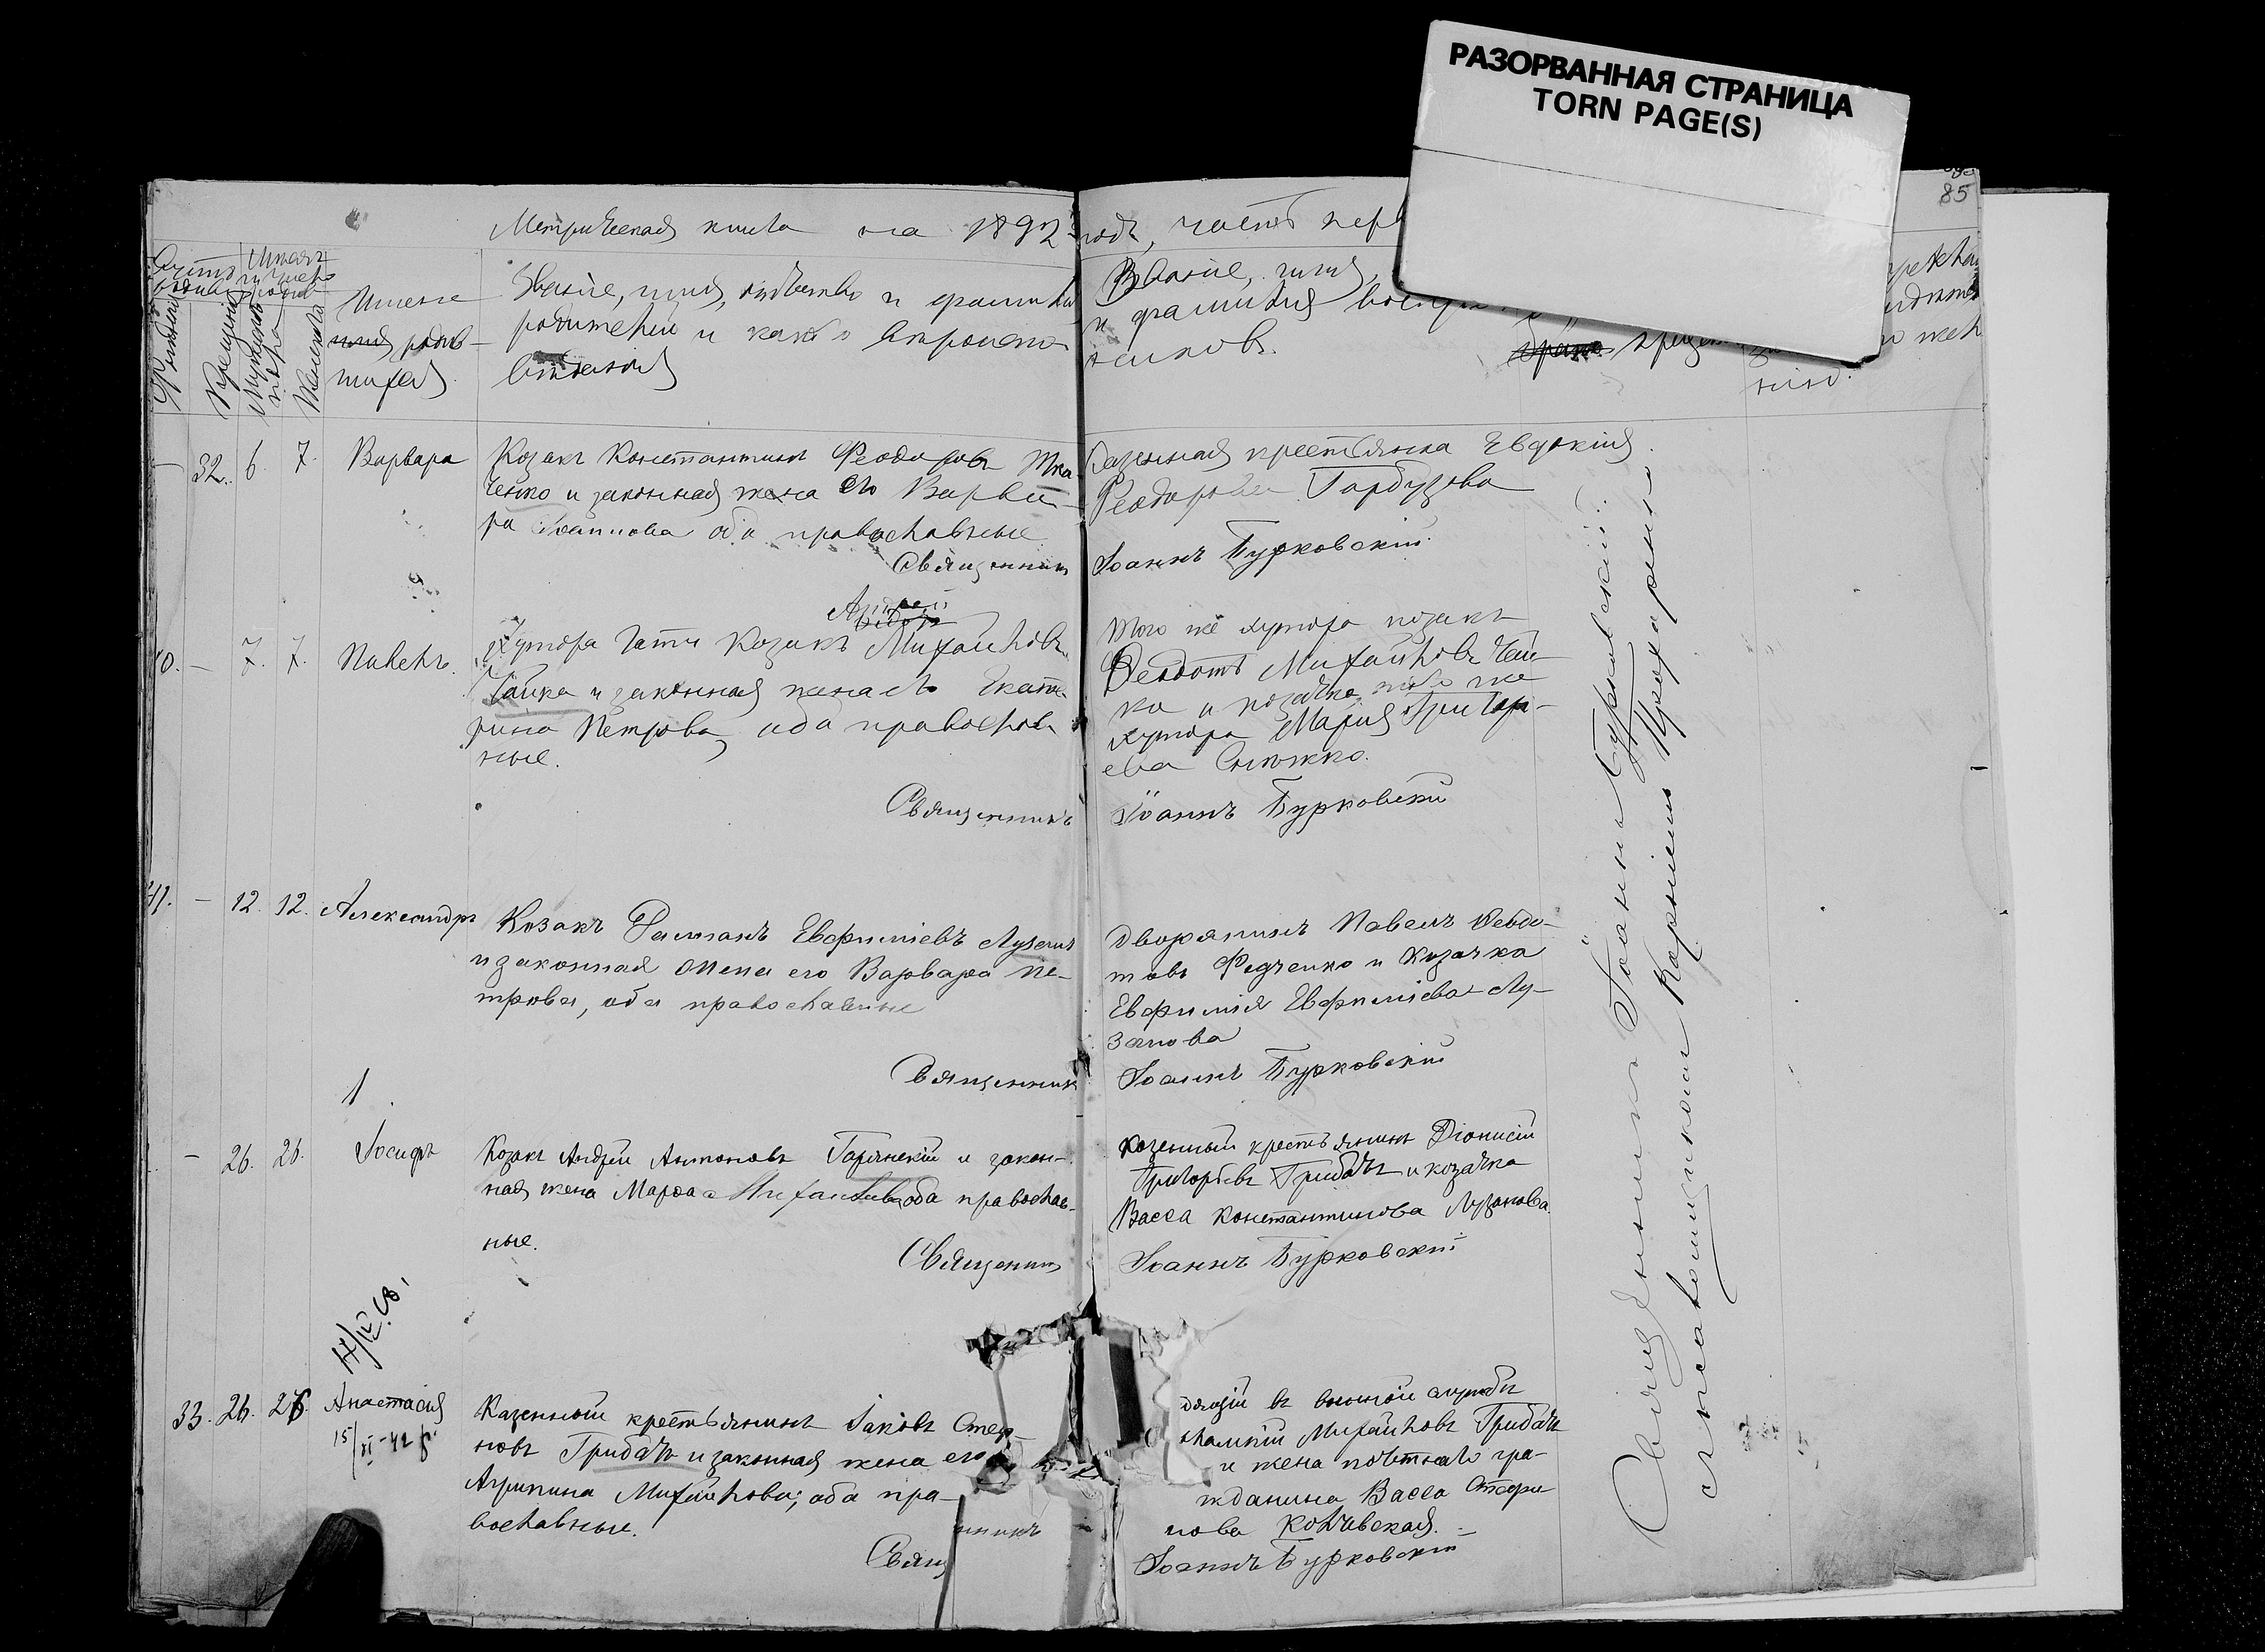 РАЗОРВАННАЯ СТРАНИЦА
TORN PAGE(S)
85
Метрическая книга на 1892 годъ, часть перв
Счетъ родив
Мужеска пола
Женска
Крещенія
Имена
родив-
шихся
Званіе, имя, отчество и фамилія
родителей и какого вѣроиспо-
вѣданія
Званіе, имя,
и фамилія воспріе
никовъ.
32. 6. 7. Варвара
Козакъ Константинъ Феодоровъ Тка
ченко и законная жена его Варва-
ра Иоаннова оба православные
Священникъ
Казенная крестьянка Евдокія
Феодорова Гарбузова
Іоаннъ Бурковскій
40. — 7. 7. Павелъ.
Андрей
Хутора Гати Козакъ Михайловъ
Чайка и законная жена его Екате
рина Петрова, оба православ
ные.
Священникъ
Того же хутора козакъ
Феодотъ Михайловъ Чай-
ка и козачка того же
хутора Марія Григорь-
ева
Іоаннъ Бурковскій
41. — 12. 12. Александръ
Козакъ Романъ Евфиміевъ Лузанъ
и законная жена его Варвара Пе-
трова, оба православные
Священникъ
Дворянинъ Павелъ Феодо-
товъ Федченко и Козачка
Евфимія Евфиміева Лу-
занова
Іоаннъ Бурковскій
— 26. 26. Іосифъ
Козакъ Андрей Антоновъ Горянскій и закон-
ная жена Марфа Михайлова оба православ-
ные.
Священникъ
Казенный крестьянинъ Діонисій
Григорьевъ Грибачъ и козачка
Васса Константинова Лузанова.
Іоаннъ Бурковскій
33. 26. 26. Анастасія
15/XI-42
Казенный крестьянинъ Іаковъ Стефа
новъ Грибачъ и законная жена его
Агрипина Михайлова; оба пра-
вославные.
Свящ
нникъ
дящій въ военной службѣ
Михайловъ Грибачъ
и жена почетнаго гра-
жданина Васса Стефа
нова
Іоаннъ Бурковскій
Священникъ Іоаннъ Бурковскій
съ псаломщикомъ